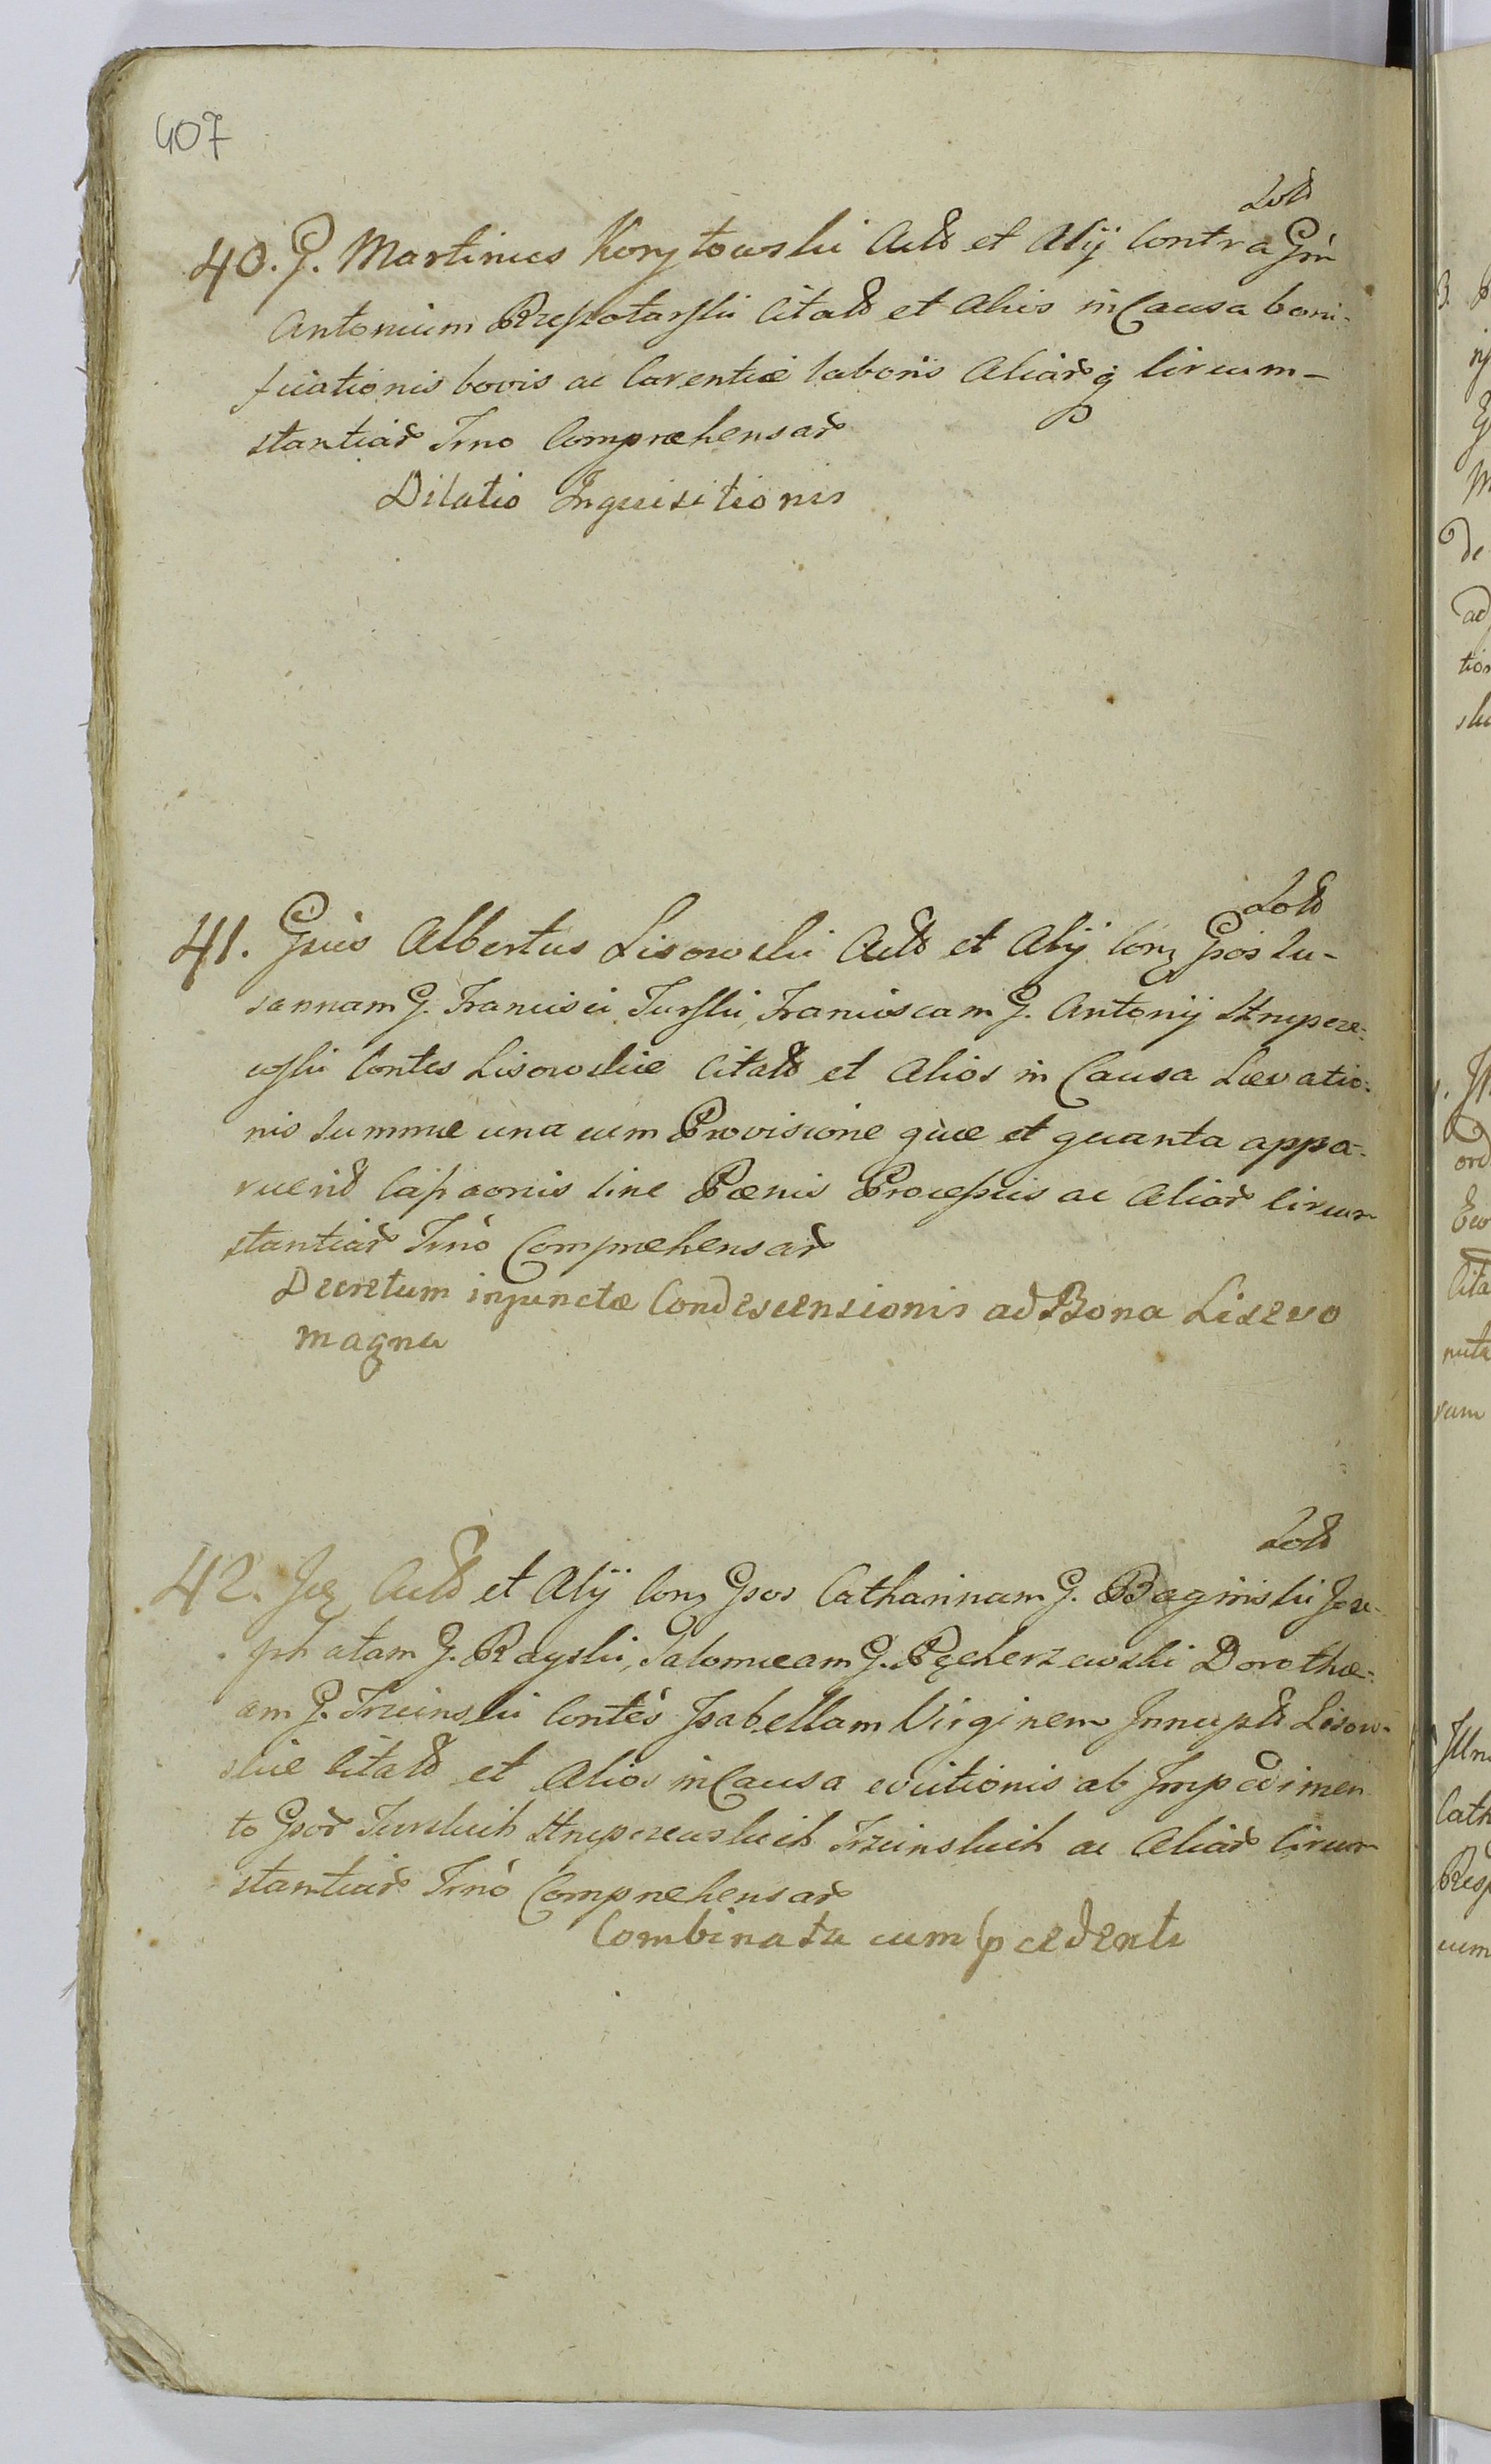 407
40. G. Martinus Korytowski Actb et Alij Contra Gm̃
Antonium Rzeszotarski Citatb et Alios in Causa boni-
ficationis bovis ac Carentiæ laboris Aliarq Circum-
stantiar Trno Comprehensar
Dilatio Inquisitionis
41. Gnus Albertus Lisowski Actb et Alij Conz Gsos Su-
sannam G. Francisci Turski, Franciscam G. Antonij Strupcze-
wski Contes Lisowskie Citatb et Alios in Causa Lævatio-
nis Summæ una cum Provisione quæ et quanta appa-
ruerit Capaonis sine Pænis Processus ac Aliar Circum
stantiar Trnò Comprehensar
Decretum injunctæ Condescensionis ad Bona Lisewo
magna
42. Actb et Alij Conz Gsos Catharinnam G. Baginski Jose-
phatam G. Rayski, Salomeam G. Pęcherzewski Dorothæ-
am G. Trzcinski Contes Isabellam Virginem Innuptb Lisow-
skie Citatb et Alios in Causa evictionis ab Impedimen
to Gsor Turskich Strupczewskich Trzcinskich ac Aliar Circum
stantiar Trnò Comprehensar
Combinata cum pcedenti